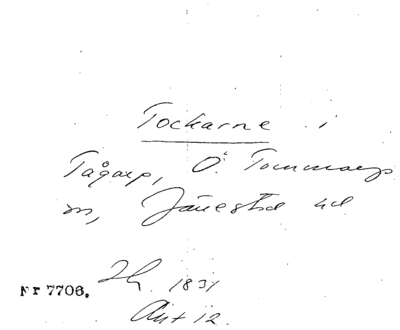 Tockarne i
Tågarp, Ö. Tommarps
sn, Järrestad hd
Nr 7706.
1831
Ant 12.